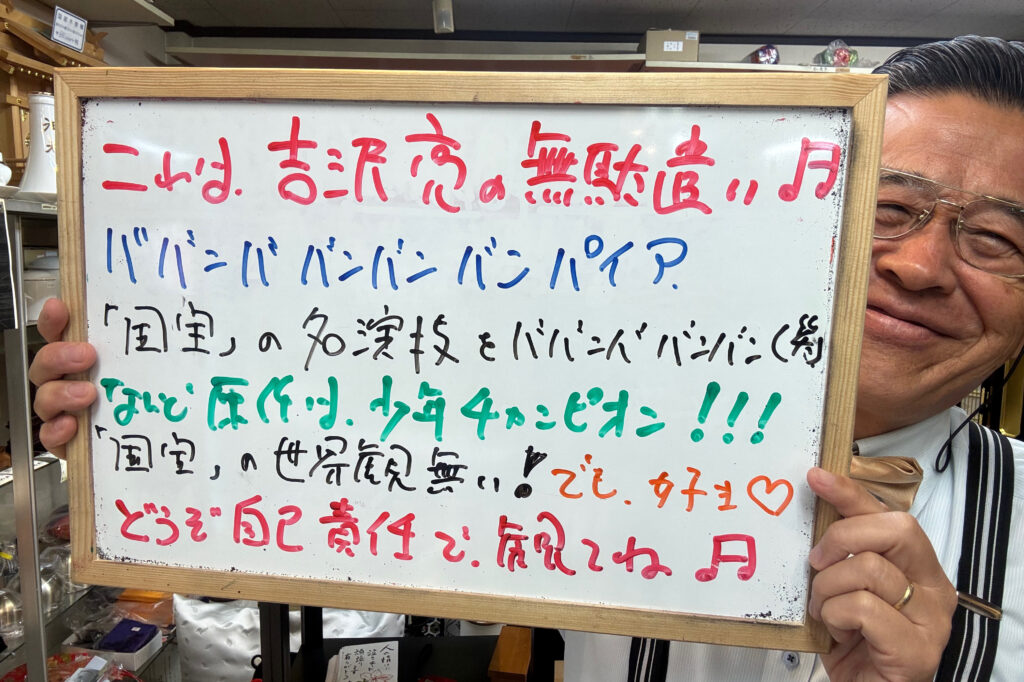 これは、吉沢亮の無駄遣い♬
ババンババンバンバンパイア、
「国宝」の名演技をババンババンバン(笑)
なんと原作は、少年チャンピオン!!!
「国宝」の世界観無い!でも、好き♡
どうぞ自己責任で、観てね♬